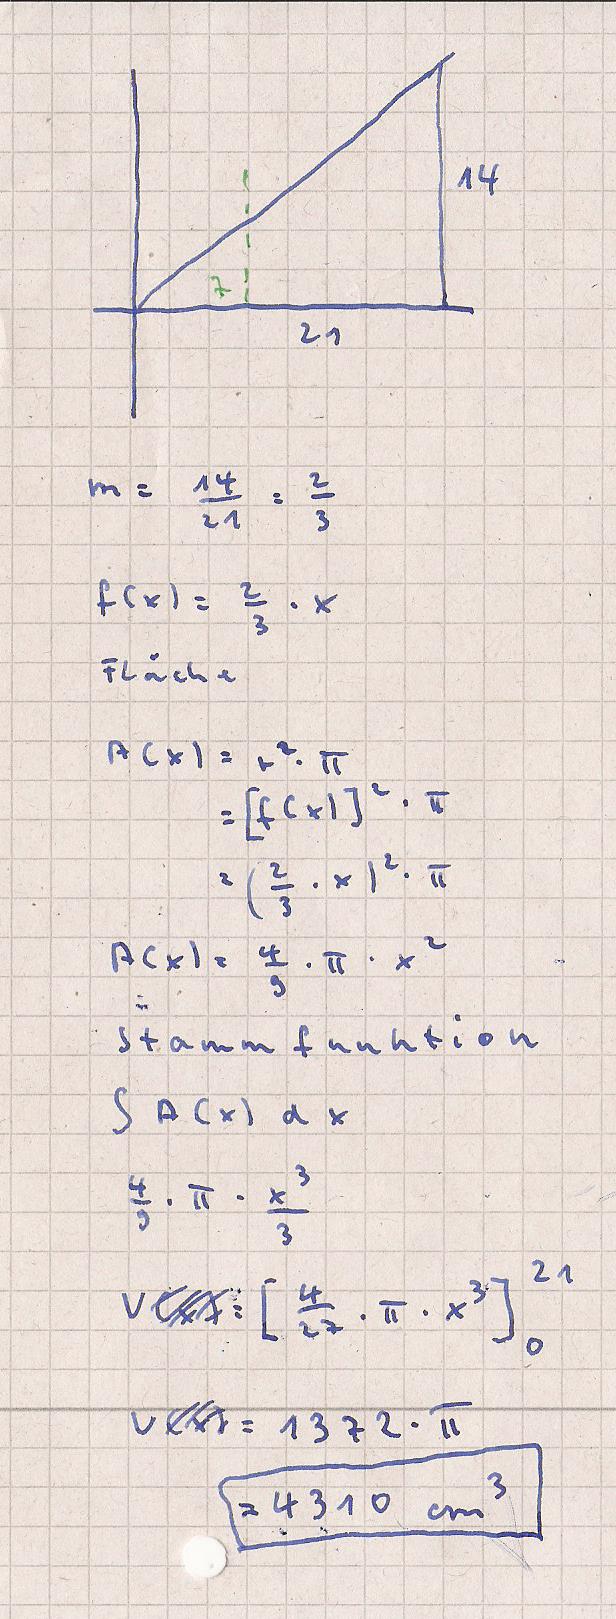 14
7
21
m = 14/21 = 2/3
f(x) = 2/3 · x
Fläche
A(x) = r² · π
= [f(x)]² · π
= (2/3 · x)² · π
A(x) = 4/9 · π · x²
Stammfunktion
∫ A(x) dx
4/9 · π · x³/3
V = [4/27 · π · x³]₀²¹
V = 1372 · π
= 4310 cm³